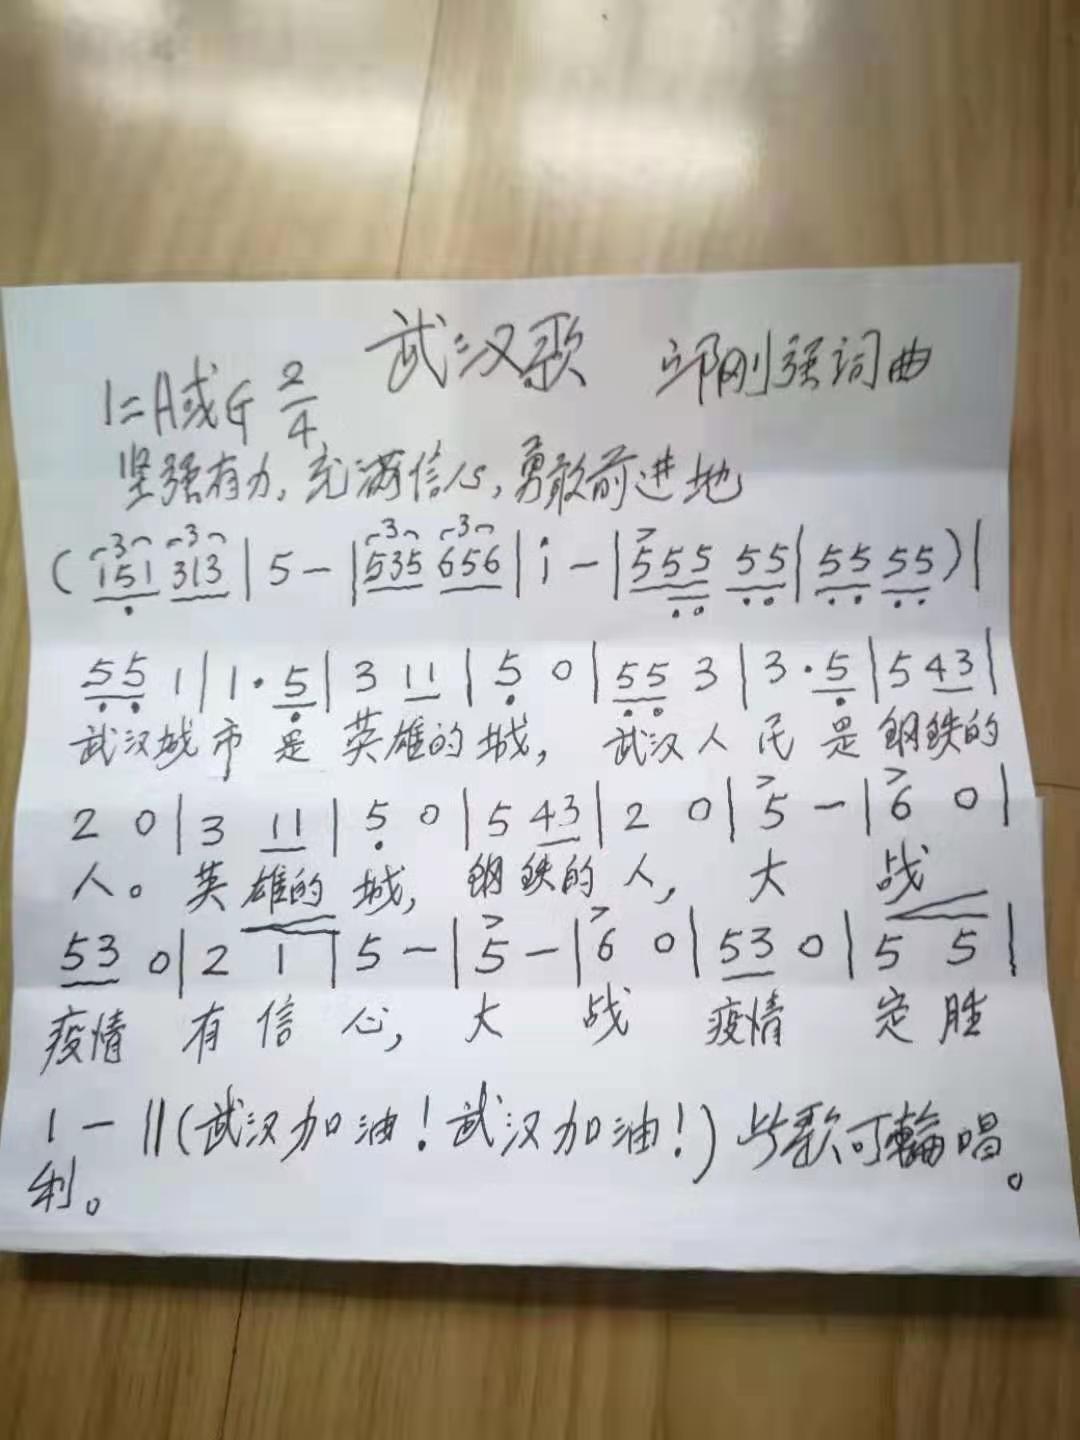 武汉歌 邓刚强词曲
1=A或G 2/4
坚强有力,充满信心,勇敢前进地
(151 313|5-|535 656|i-|555 55|55 55)|
55 1|1·5|3 11|5 0|55 3|3·5|5 43|
武汉城市是英雄的城,武汉人民是钢铁的
2 0|3 11|5 0|5 43|2 0|5-|6 0|
人。英雄的城,钢铁的人,大战
53 0|2 1|5-|5-|6 0|53 0|5 5|
疫情有信心,大战疫情定胜
1-‖(武汉加油!武汉加油!)此歌可輪唱。
利。